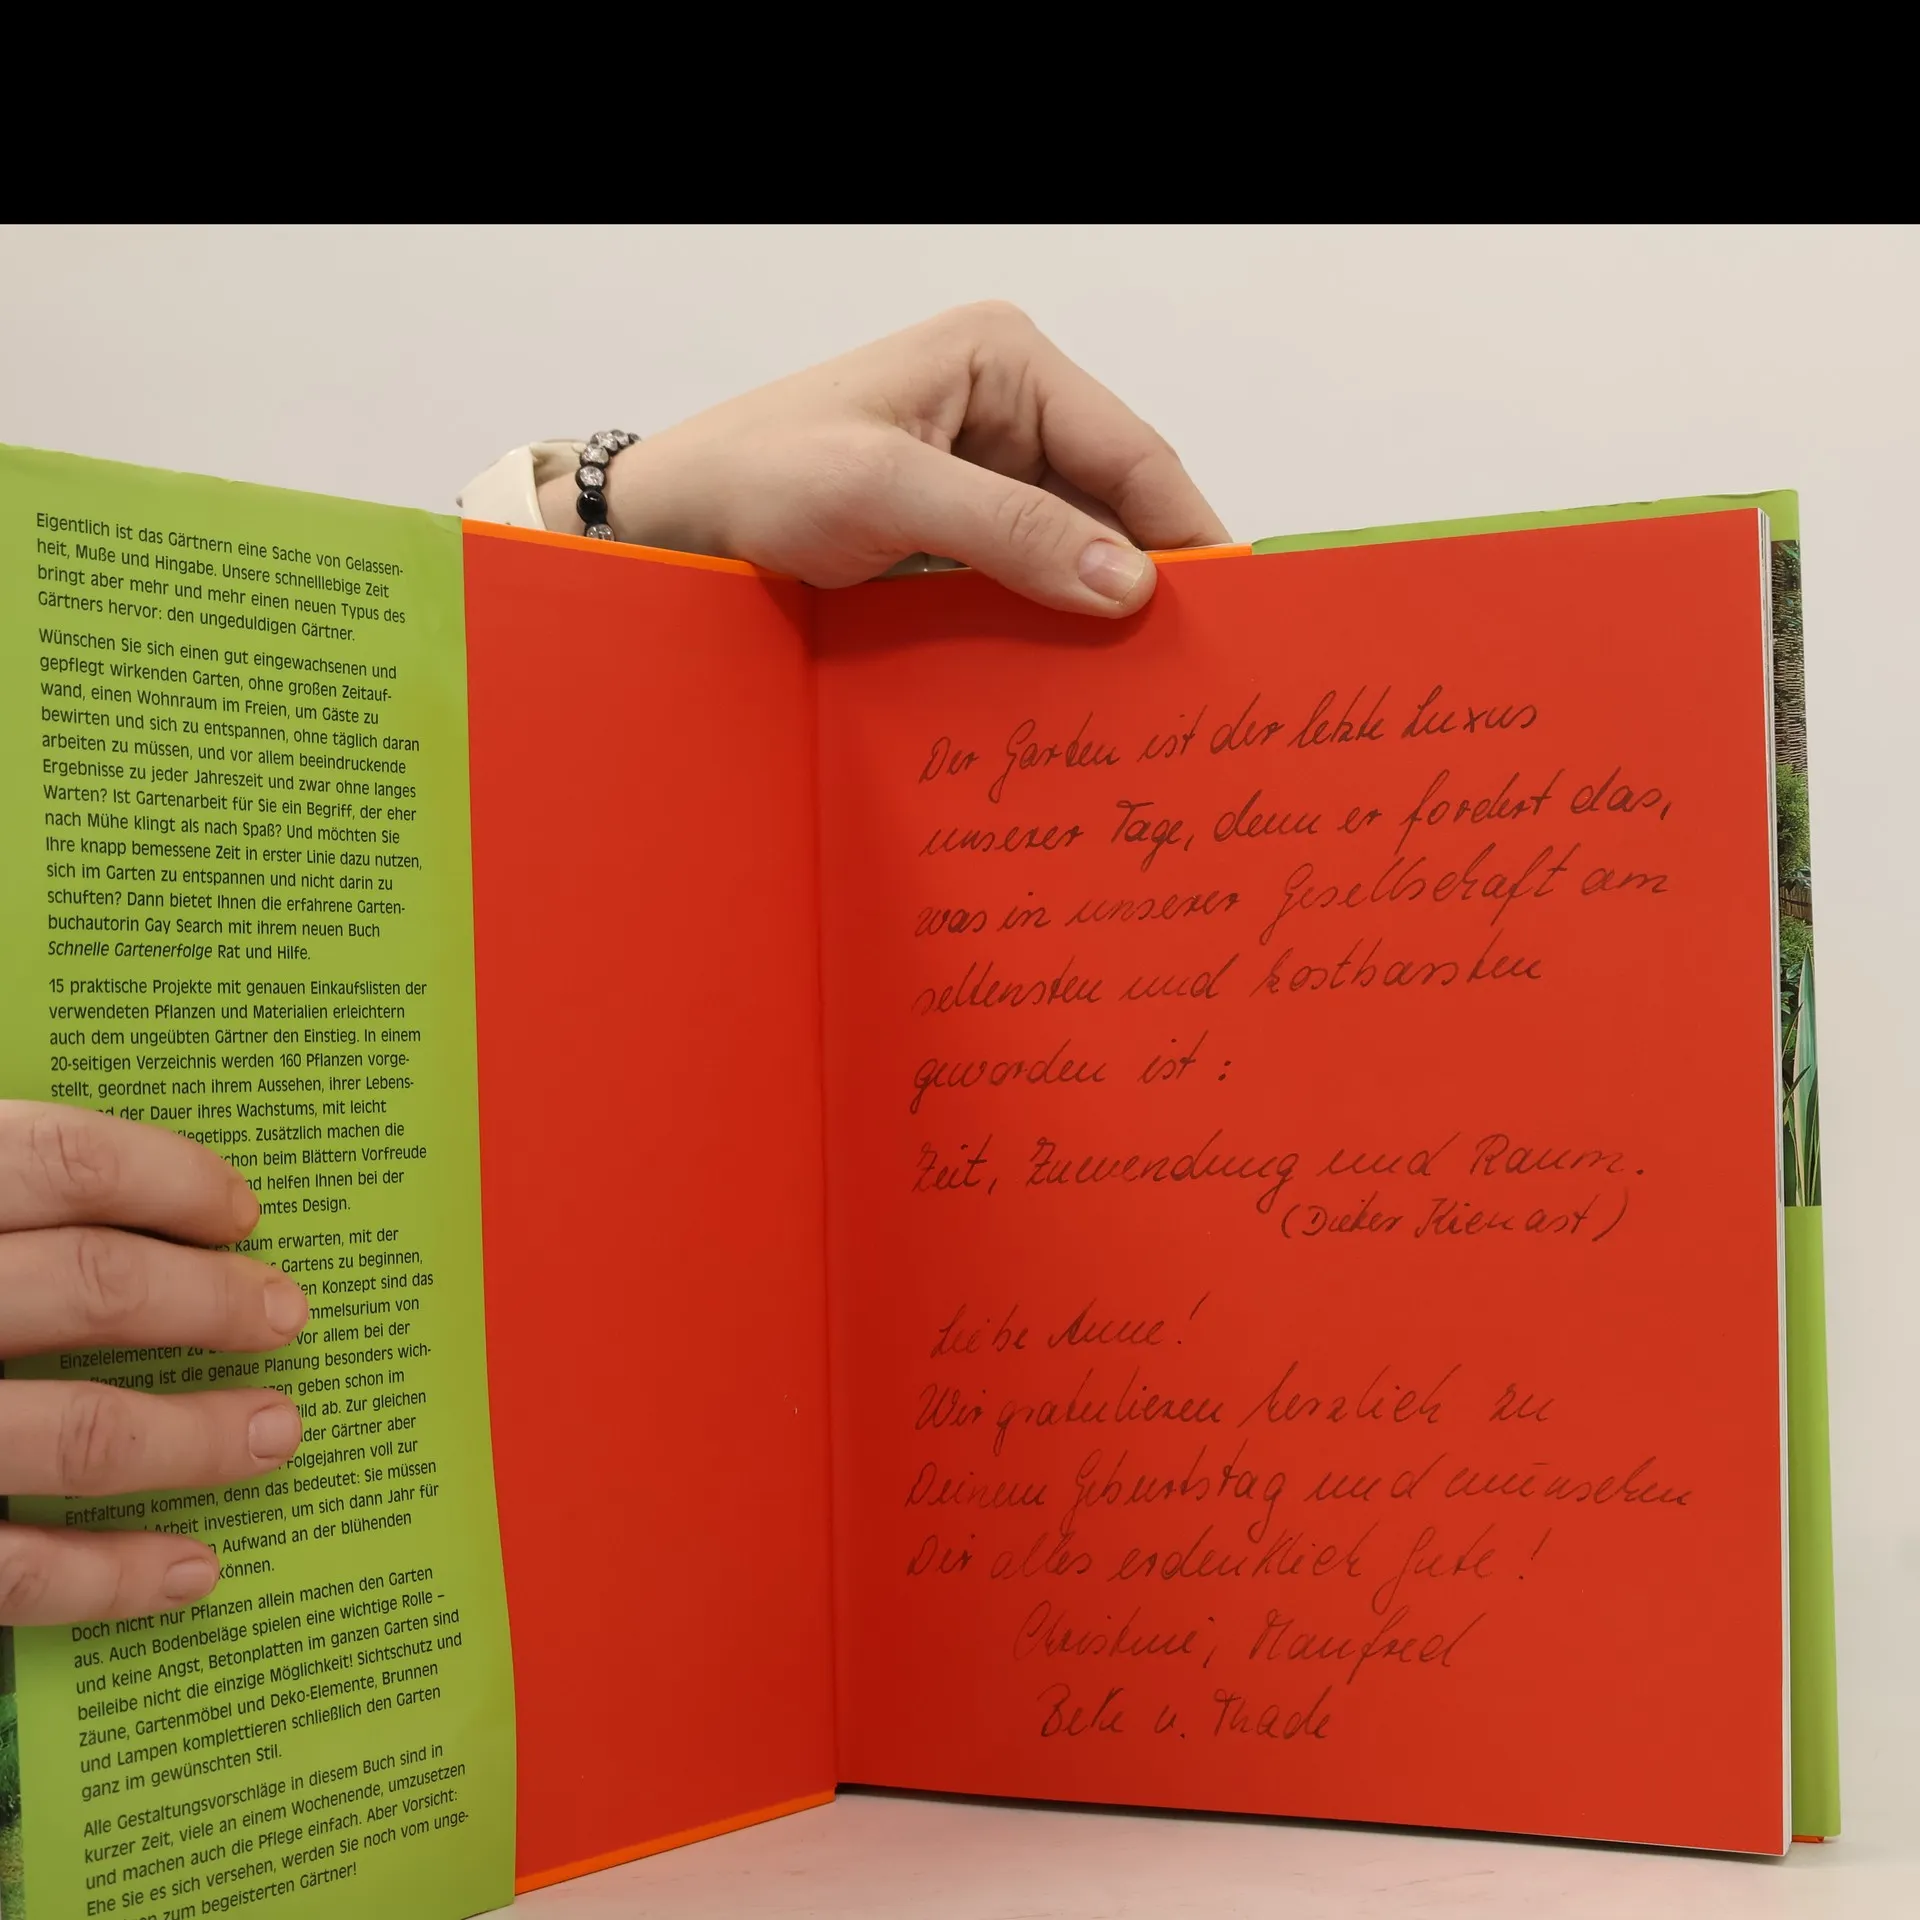 Eigentlich ist das Gärtnern eine Sache von Gelassen-
heit, Muße und Hingabe. Unsere schnelllebige Zeit
bringt aber mehr und mehr einen neuen Typus des
Gärtners hervor: den ungeduldigen Gärtner.
Wünschen Sie sich einen gut eingewachsenen und
gepflegt wirkenden Garten, ohne großen Zeitauf-
wand, einen Wohnraum im Freien, um Gäste zu
bewirten und sich zu entspannen, ohne täglich daran
arbeiten zu müssen, und vor allem beeindruckende
Ergebnisse zu jeder Jahreszeit und zwar ohne langes
Warten? Ist Gartenarbeit für Sie ein Begriff, der eher
nach Mühe klingt als nach Spaß? Und möchten Sie
Ihre knapp bemessene Zeit in erster Linie dazu nutzen,
sich im Garten zu entspannen und nicht darin zu
schuften? Dann bietet Ihnen die erfahrene Garten-
buchautorin Gay Search mit ihrem neuen Buch
Schnelle Gartenerfolge Rat und Hilfe.
15 praktische Projekte mit genauen Einkaufslisten der
verwendeten Pflanzen und Materialien erleichtern
auch dem ungeübten Gärtner den Einstieg. In einem
20-seitigen Verzeichnis werden 160 Pflanzen vorge-
stellt, geordnet nach ihrem Aussehen, ihrer Lebens-
der Dauer ihres Wachstums, mit leicht
Zusätzlich machen die
beim Blättern Vorfreude
helfen Ihnen bei der
Design.
kaum erwarten, mit der
Gartens zu beginnen,
Konzept sind das
von
vor allem bei der
Einzelelementen
ist die genaue Planung besonders wich-
geben schon im
ab. Zur gleichen
Gärtner aber
Folgejahren voll zur
Entfaltung kommen, denn das bedeutet: Sie müssen
Arbeit investieren, um sich dann Jahr für
Aufwand an der blühenden
können.
Doch nicht nur Pflanzen allein machen den Garten
aus. Auch Bodenbeläge spielen eine wichtige Rolle –
und keine Angst, Betonplatten im ganzen Garten sind
beileibe nicht die einzige Möglichkeit! Sichtschutz und
Zäune, Gartenmöbel und Deko-Elemente, Brunnen
und Lampen komplettieren schließlich den Garten
ganz im gewünschten Stil.
Alle Gestaltungsvorschläge in diesem Buch sind in
kurzer Zeit, viele an einem Wochenende, umzusetzen
und machen auch die Pflege einfach. Aber Vorsicht:
Ehe Sie es sich versehen, werden Sie noch vom unge-
zum begeisterten Gärtner!
Der Garten ist der letzte Luxus
unserer Tage, denn er fordert das,
was in unserer Gesellschaft am
seltensten und kostbarsten
geworden ist :
Zeit, Zuwendung und Raum.
(Dieter Kienast)
Liebe Anne!
Wir gratulieren herzlich zu
Deinem Geburtstag und wünschen
Dir alles erdenklich Gute!
Christine, Manfred
Beke u. Thade